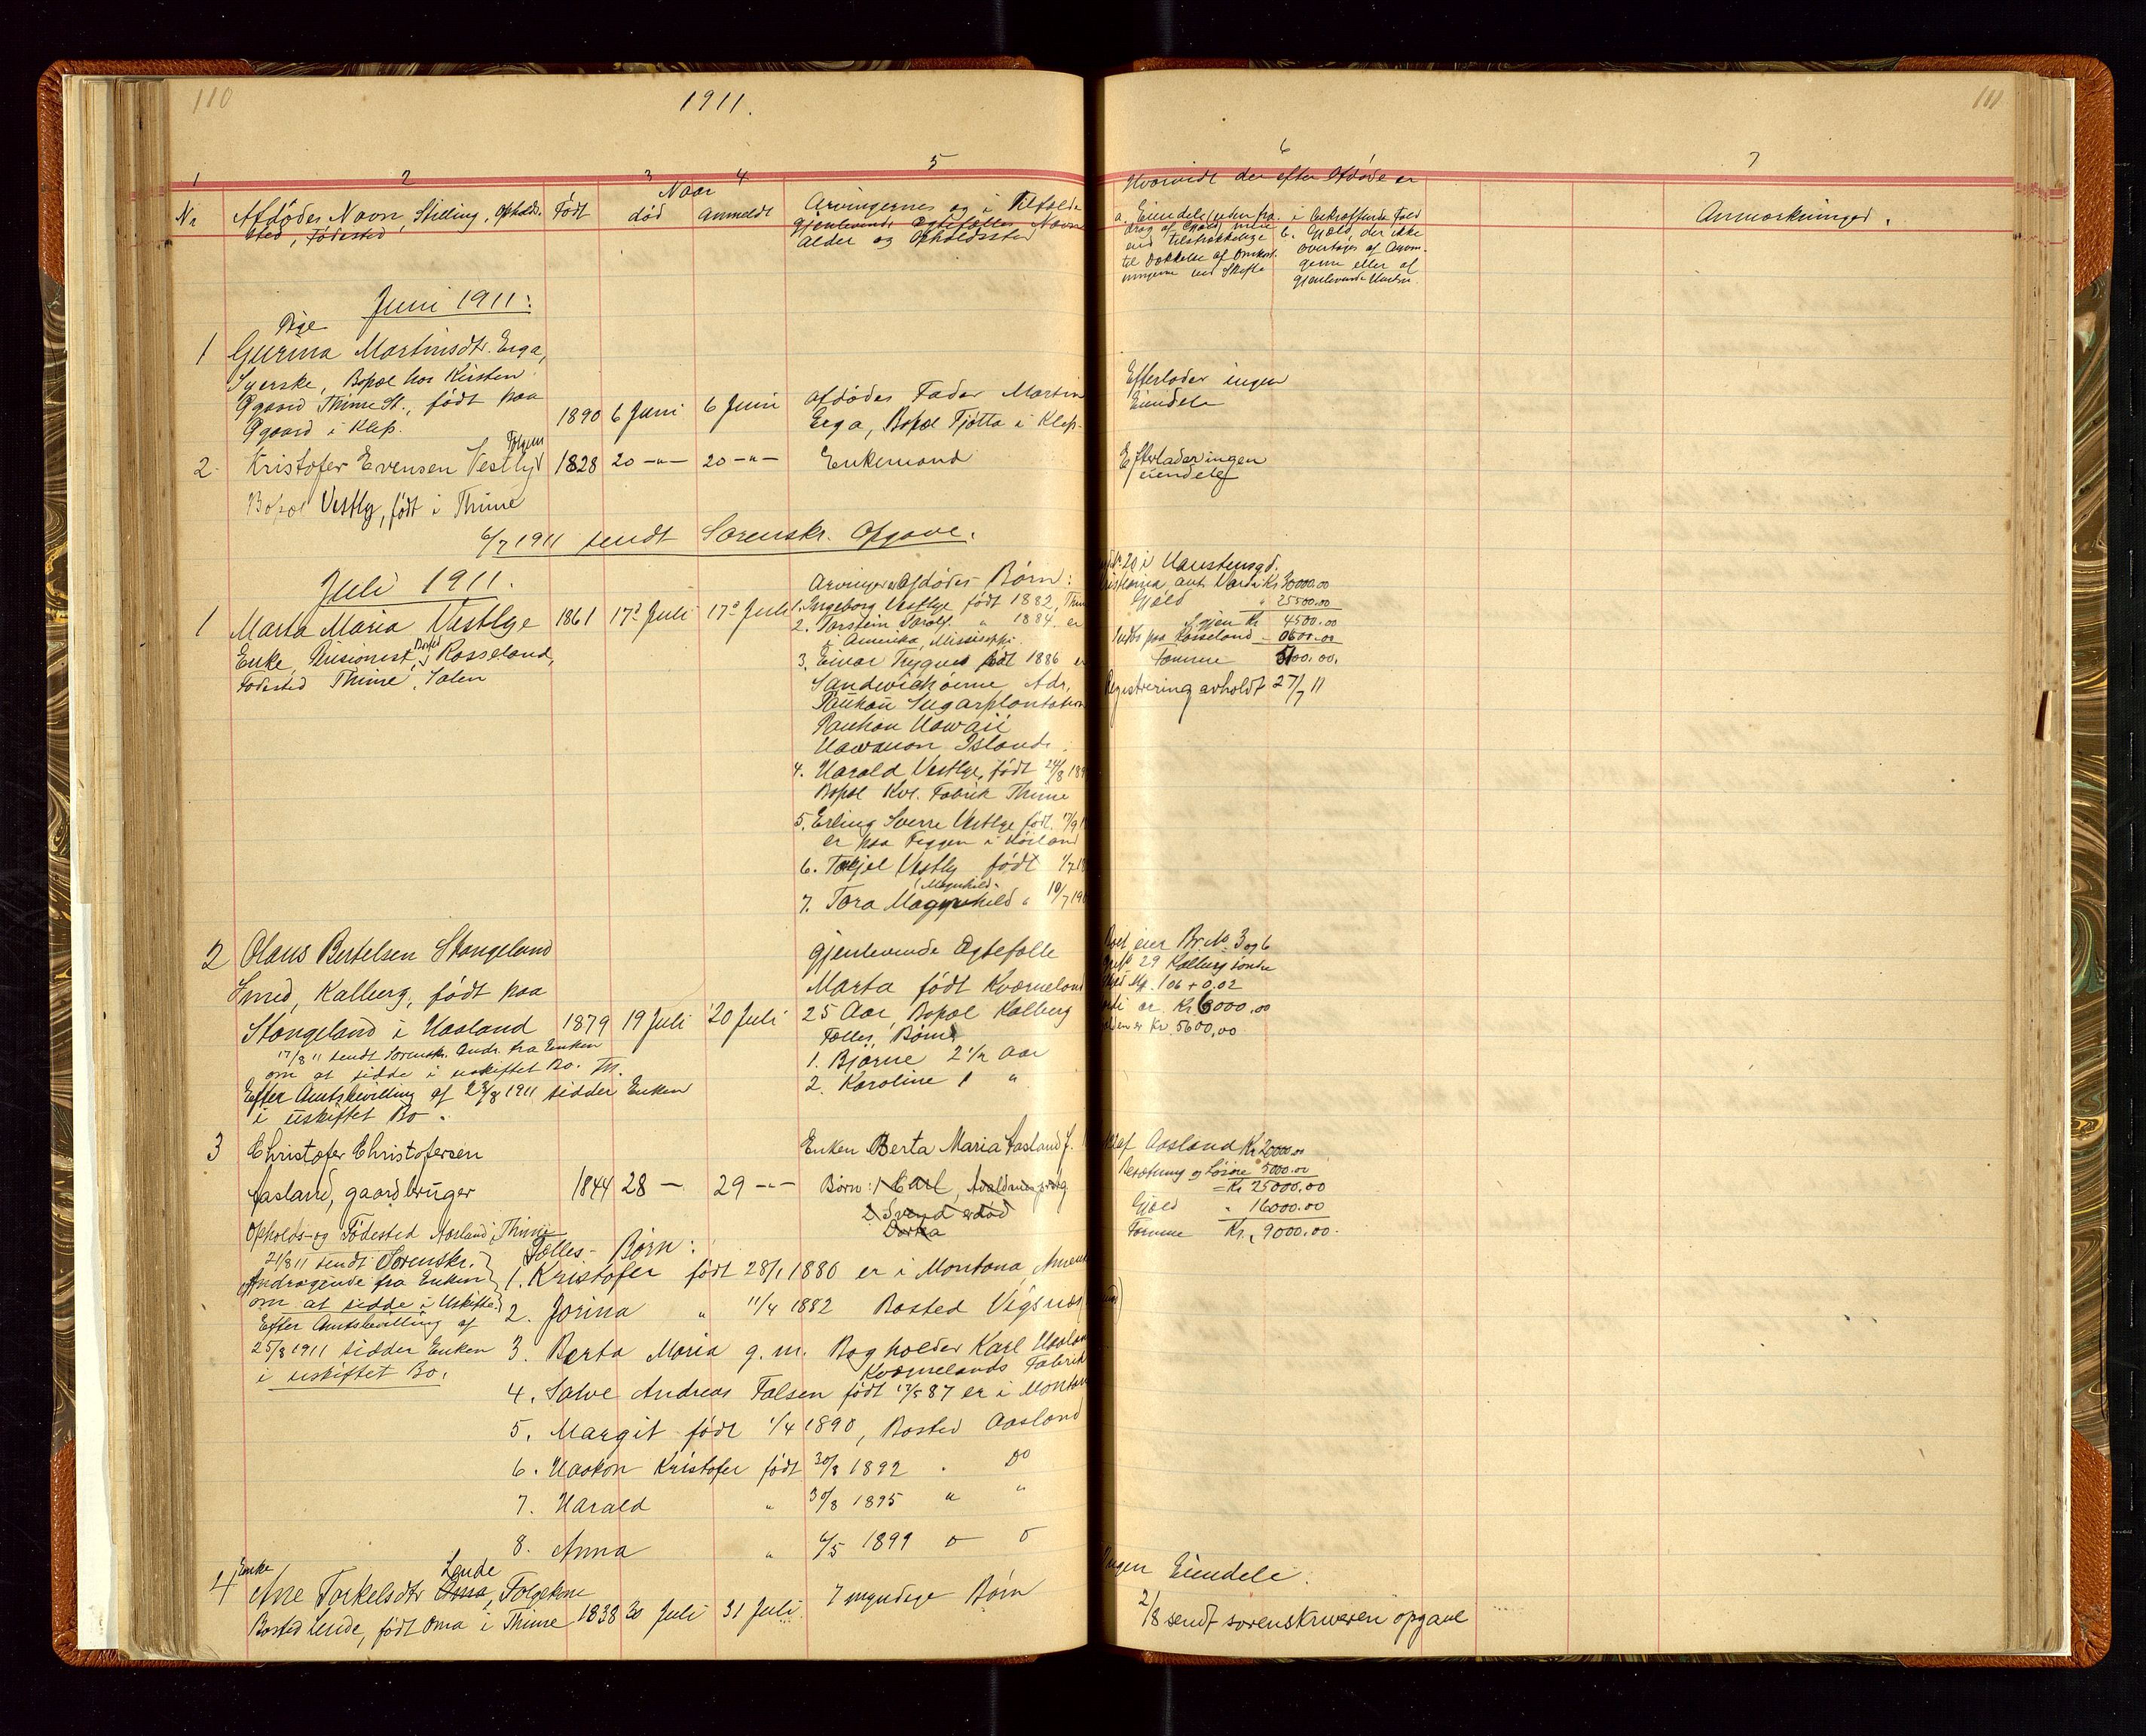 110
1911.
1
2
3
4
5
Nr
Afdødes Navn, Stilling, Opholds-
sted, Fødested
Født
Naar
død
anmeldt
Arvingernes og i Tilfælde
gjenlevende Egtefælles Navn
Alder og Opholdssted
Juni 1911:
Pige
1 Gurina Martinsdtr. Erga,
Syerske, Bopæl hos Kirsten
Øgaard Thime St., født paa
Øgaard i Klep.
1890 6 Juni 6 Juni
afdødes Fader Martin
Erga, Bopæl Fjøtta i Klep.
2. Kristofer Evensen Vestly
1828 20 -"- 20 -"- Enkemand
Bopæl Vestly, født i Thime
6/7 1911 sendt Sorenskr. Opgave.
Juli 1911.
Arvinger Afdødes Børn:
1 Marta Maria Vestlye
Enke, Pensionist, Bopæl Rosseland,
Fødested Thime, Salen
1861 17de Juli 17de Juli
1. Ingeborg Vestlye født 1882, Thime
2. Torstein Torolf " 1884. er
i Amerika, Mississippi.
3. Einar Trygve født 1886 er
Sandwichøerne Adr.
Paukaū Sugarplantation
Paukau Hawaii
Hawauon Islands.
4. Harald Vestlye, født 24/8 189
Bopæl Kvl. Fabrik Thime
5. Erling Sverre Vestlye født. 17/9 1
er paa Foggen i Høiland
6. Torkjel Vestly født 1/7 18
(Magnhild)
7. Tora Magnhild " 10/7 190
2 Olaus Bertelsen Stangeland
Smed, Kalberg, født paa
Stangeland i Høiland
1879 19 Juli 20 Juli
gjenlevende Egtefælle
Marta født Kværneland
25 Aar, Bopæl Kalberg
Fælles Børn
1. Bjarne 2 1/2 Aar
2. Karoline 1 "
17/8 11 sendt Sorenskr. Andr. fra Enken
om at sidde i uskiftet Bo. Th.
Efter Amtsbevilling af 23/8 1911 sidder Enken
i uskiftet Bo.
3 Christofer Christofersen
Aasland, gaardbruger
1844 28 - 29 -"-
Opholds- og Fødested Aasland, Thime
Enken Berta Maria Aasland f.
Børn: 1 Carl,
2 Svend er død
Dorka
21/8 11 sendt Sorenskr.
Andragende fra Enken
om at sidde i Uskifte.
Efter Amtsbevilling af
25/8 1911 sidder Enken
i uskiftet Bo.
Fælles-Børn:
1. Kristofer født 28/1 1880 er i Montana, Amerika
2. Jorina " 11/4 1882 Bosted Vigsnæs
3. Berta Maria g. m. Bogholder Karl Haaland
Kværnelands Fabrik
4. Salve Andreas Falsen født 17/5 87 er i Montana
5. Margit født 1/4 1890, Bosted Aasland
6. Haakon Kristofer født 30/3 1892 . Do
7. Harald " 30/8 1895 " "
8. Anna " 6/5 1899
4 Enke
Ane Torkelsdtr Oma, Lende Folgekone
Bosted Lende, født Oma i Thime 1838 30 Juli 31 Juli. 7 myndige Børn
111
6
7
Hvorvidt der efter Afdøde er
a. Eiendele (uden fra-
drag af Gjæld) mere
end tilstrækkelige
til Dækkelse af Omkost-
ningerne ved Skifte
i bekræftende Fald
b. Gjæld, der ikke
overtages af Arvin-
gerne eller af
gjenlevende Ægtef.
Anmærkninger.
Efterlader ingen
Eiendele
Efterlader ingen
eiendele
20 i Haustensgd.
Kristiania ant. Værdi Kr 30000.00
Gjæld " 25500.00
Igjen Kr 4500.00
paa Rosseland - 0600.00
tomme 5100.00.
Registrering avholdt 27/7 11
eier Br.No 3 og 6
29 Kalberg søndre
Skyld Mk. 1.06 + 0.02
Værdi er Kr 6000.00
Gjælden er Kr. 5600.00
af Aasland Kr 20000.00
Besætning og Løsøre " 5000.00
= Kr 25000.00
Gjæld " 16000.00
Formue Kr. 9000.00.
Ingen Eiendele.
2/8 sendt sorenskriveren opgave